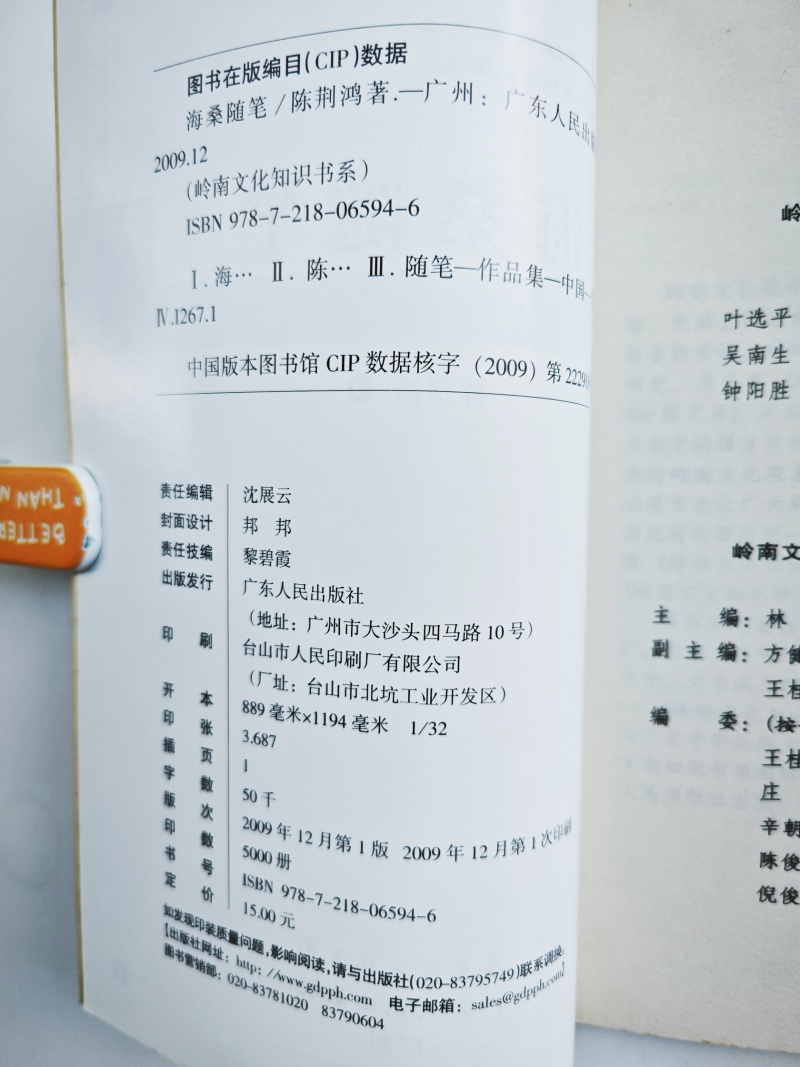 图书在版编目(CIP)数据
海桑随笔/陈荆鸿著.—广州：广东人民出版
2009.12
(岭南文化知识书系)
ISBN 978-7-218-06594-6
Ⅰ.海… Ⅱ.陈… Ⅲ.随笔—作品集—中国—
Ⅳ.I267.1
中国版本图书馆CIP数据核字(2009)第22291
责任编辑 沈展云
封面设计 邦 邦
责任技编 黎碧霞
出版发行 广东人民出版社
(地址：广州市大沙头四马路10号)
印 刷 台山市人民印刷厂有限公司
(厂址：台山市北坑工业开发区)
开 本 889毫米×1194毫米 1/32
印 张 3.687
插 页 1
字 数 50千
版 次 2009年12月第1版 2009年12月第1次印刷
印 数 5000册
书 号 ISBN 978-7-218-06594-6
定 价 15.00元
如发现印装质量问题,影响阅读,请与出版社(020-83795749)联系调换。
【出版社网址：http://www.gdpph.com 电子邮箱：sales@gdpph.com】
图书营销部：020-83781020 83790604
BETTER
THAN
岭
叶选平
吴南生
钟阳胜
岭南文
主 编：林
副主编：方健
王桂
编 委：(按
王桂
庄
辛朝
陈俊
倪俊